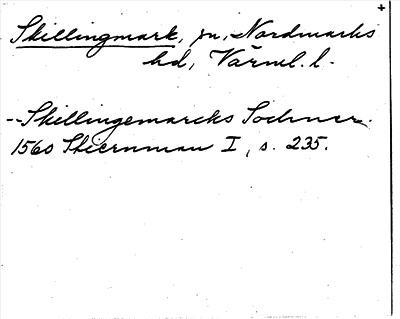 Skillingmark, sn, Nordmarks
hd, Värml. l.
--Skillingemarcks Sochner.
1560 Stiernman I, s. 235.